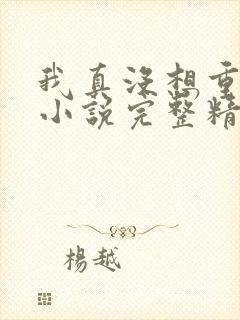 我真没想重
小說完整精
楊越